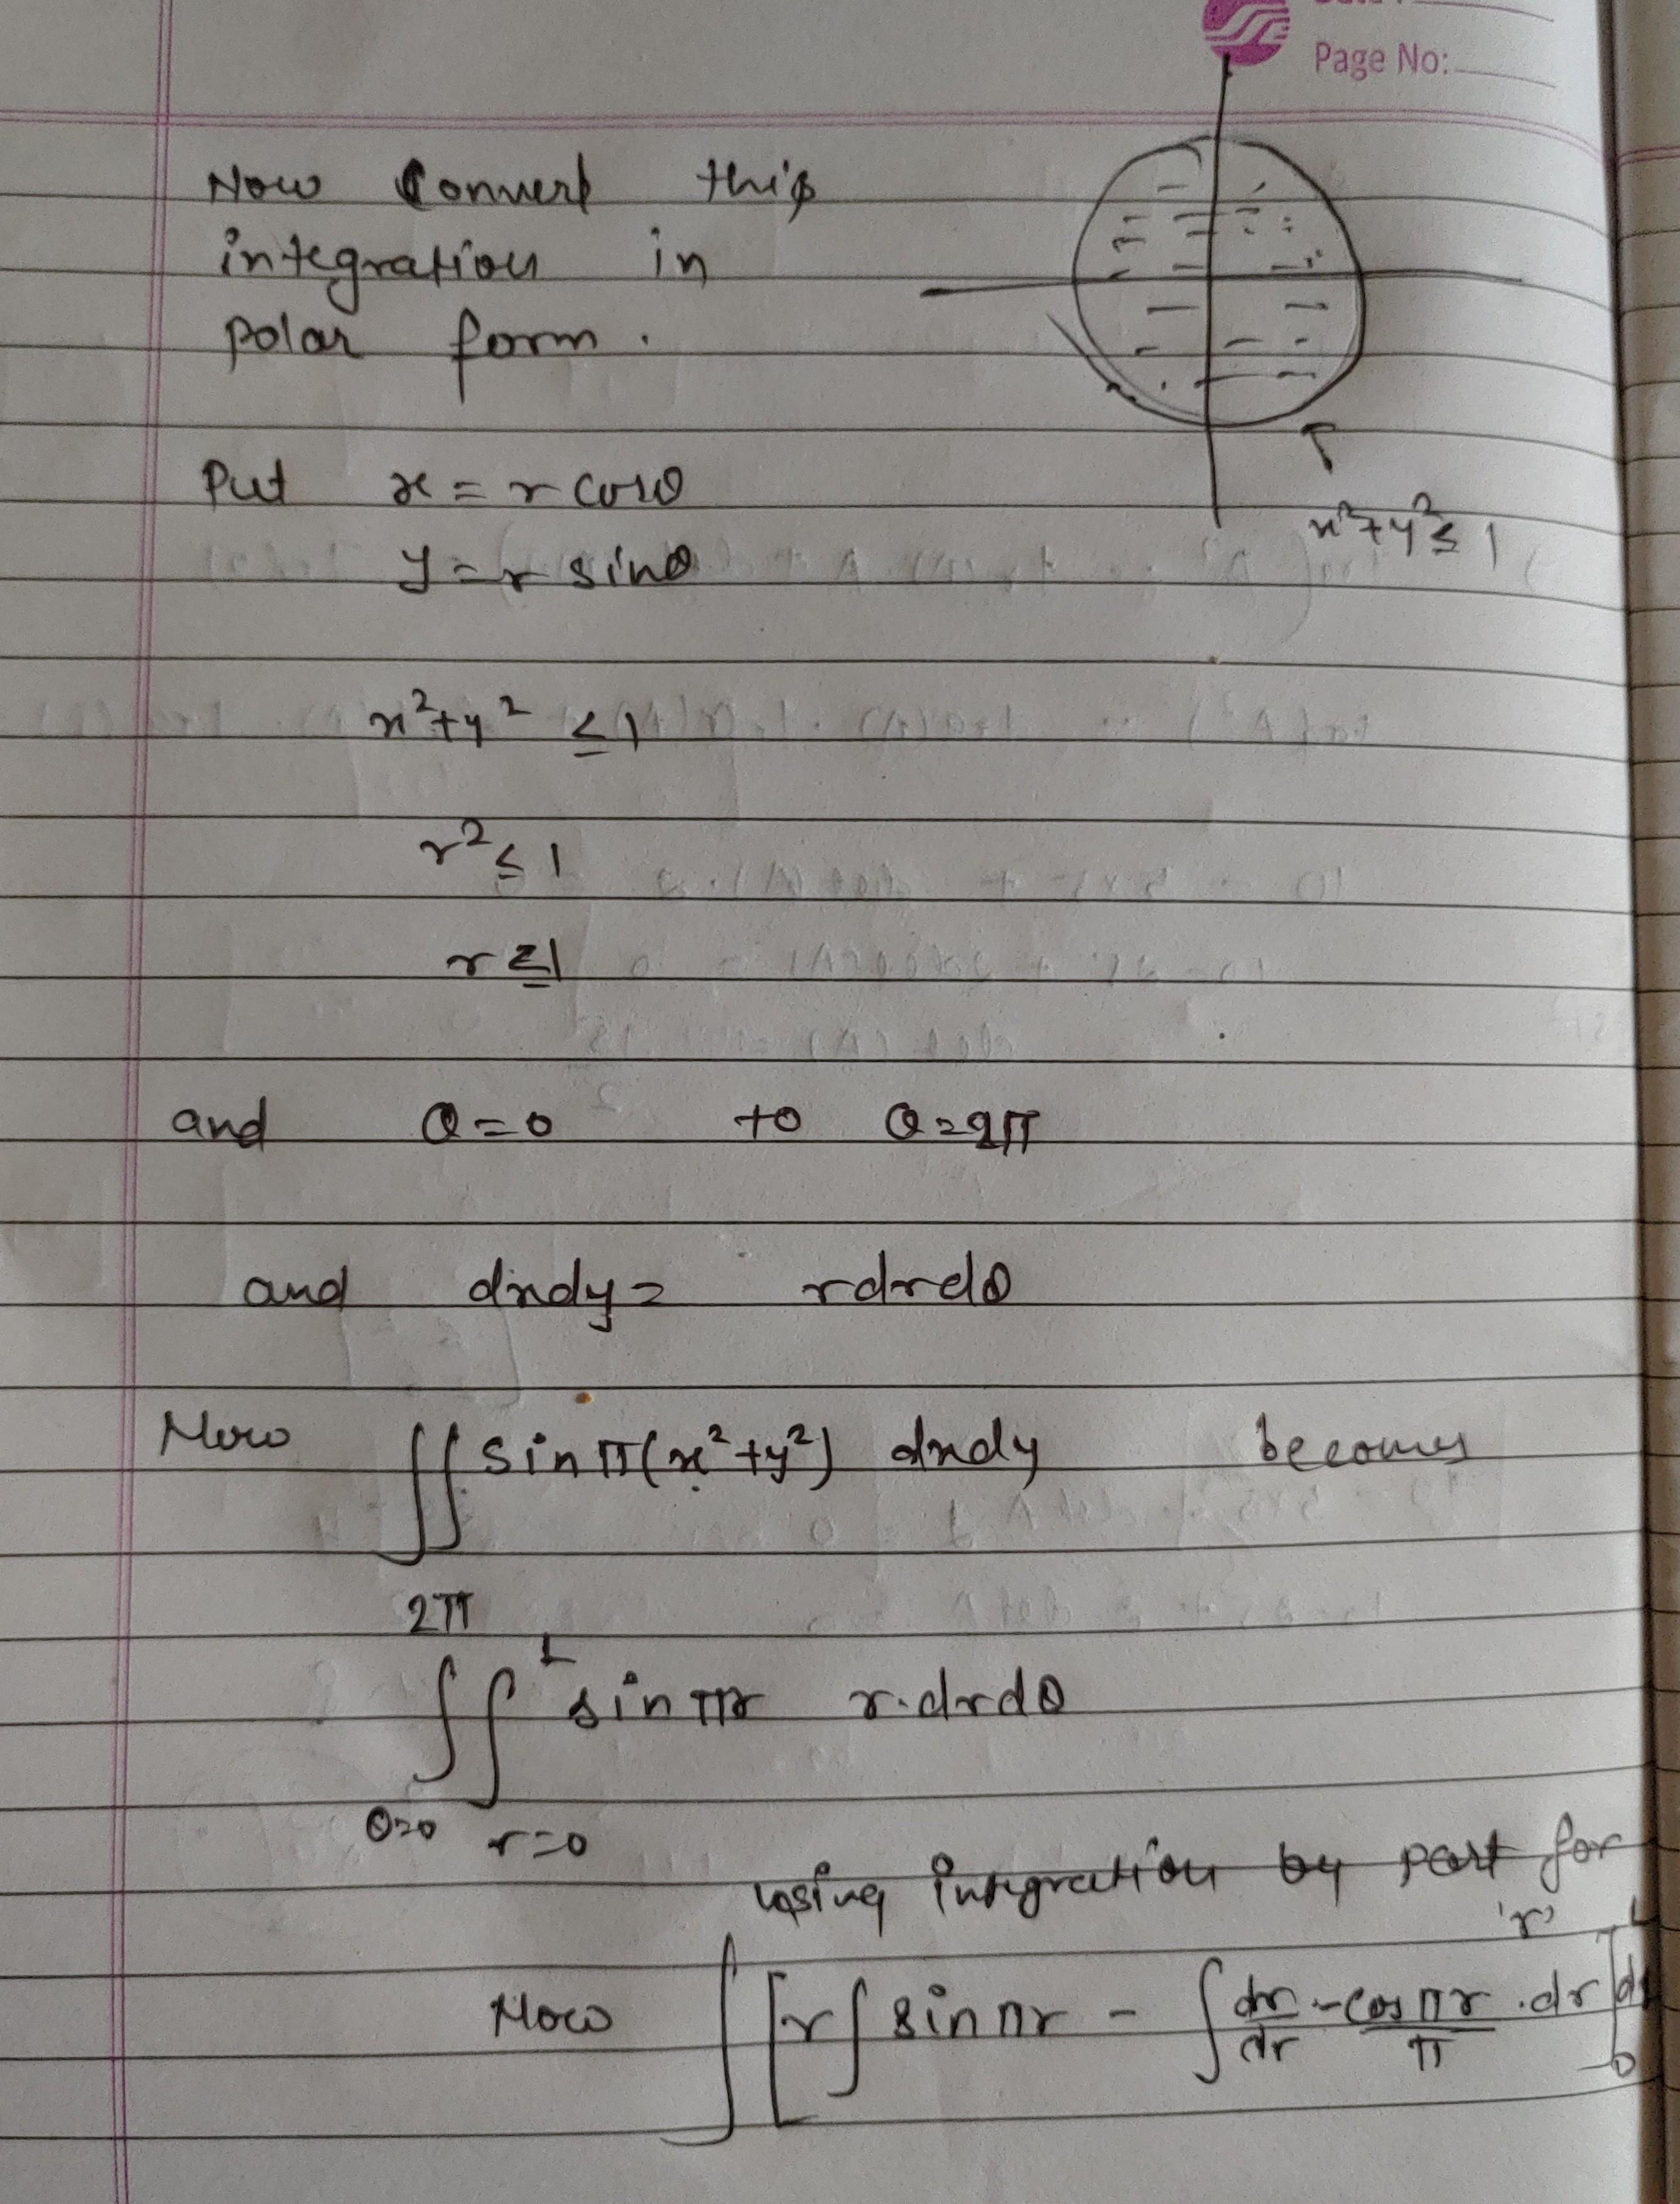 Page No:
Now Convert this
integration in
polar form.
Put x = r cosθ
y = r sinθ
x²+y² ≤ 1
x²+y² ≤ 1
r² ≤ 1
r ≤ 1
and θ=0 to θ=2π
and dxdy = rdrdθ
Now ∬ sin π(x²+y²) dxdy becomes
2π
∫∫ 1 sin πr r.drdθ
θ=0 r=0
using integration by part for
'r'
Now ∫ [r∫ sin πr - ∫ dr/dr -cos πr/π .dr]